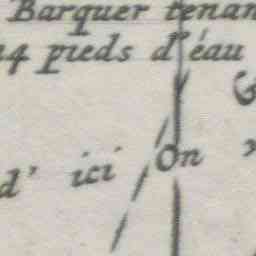 Barquer tenan
14 pieds d'éau
d' ici On